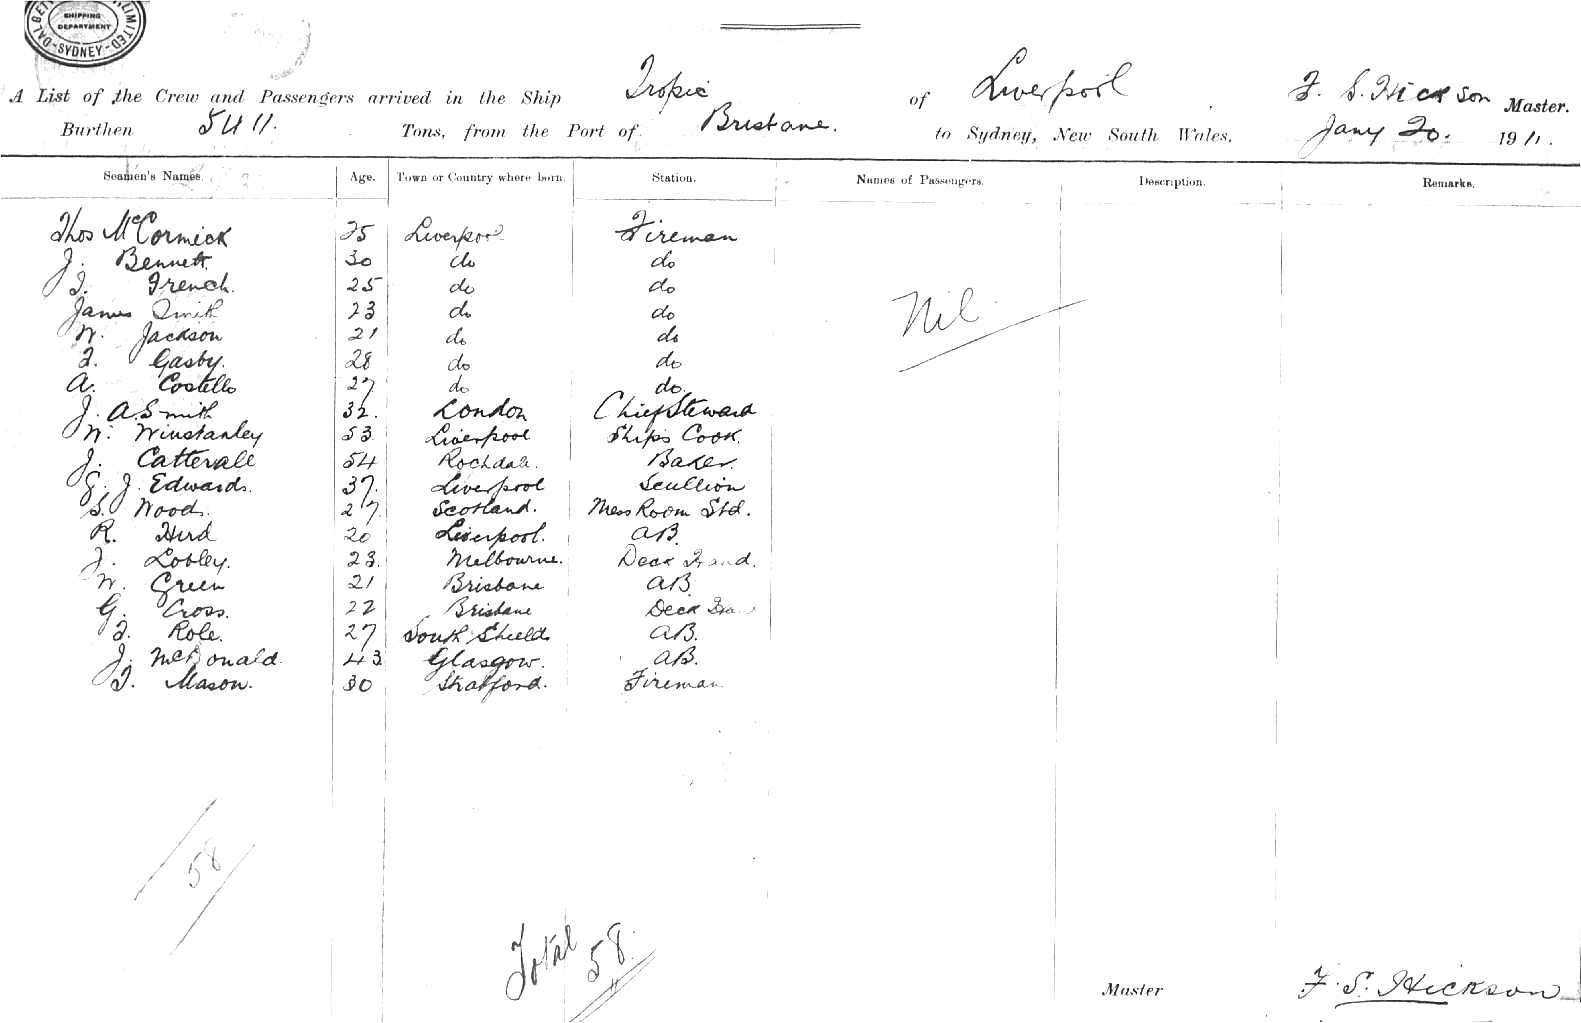 DALGETY LIMITED
SHIPPING
DEPARTMENT
SYDNEY
A List of the Crew and Passengers arrived in the Ship Tropic of Liverpool F. S. Hickson Master.
Burthen 5411. Tons, from the Port of Brisbane. to Sydney, New South Wales, Jany 20. 1911.
Seamen's Names. Age. Town or Country where born. Station. Names of Passengers. Description. Remarks.
Thos McCormick 25 Liverpool Fireman
J. Bennett. 30 do do
T. French. 25 do do
James Smith 23 do do Nil
W. Jackson 21 do do
T. Gasby. 28 do do
A. Costello 27 do do.
J. A. Smith 32. London Chief Steward
W. Winstanley 53. Liverpool Ships Cook.
J. Catterall 54 Rochdale. Baker.
G. J. Edwards. 37. Liverpool Scullion
S. Wood. 27. Scotland. Mess Room Std.
R. Hird 20 Liverpool. AB.
J. Lobley. 23. Melbourne. Deck Hand.
W. Green 21 Brisbane AB.
G. Cross. 22 Brisbane Deck
T. Role. 27 South Shields AB.
J. McDonald. 43 Glasgow. AB.
T. Mason. 30 Stratford. Fireman
58
Total 58.
Master F. S. Hickson